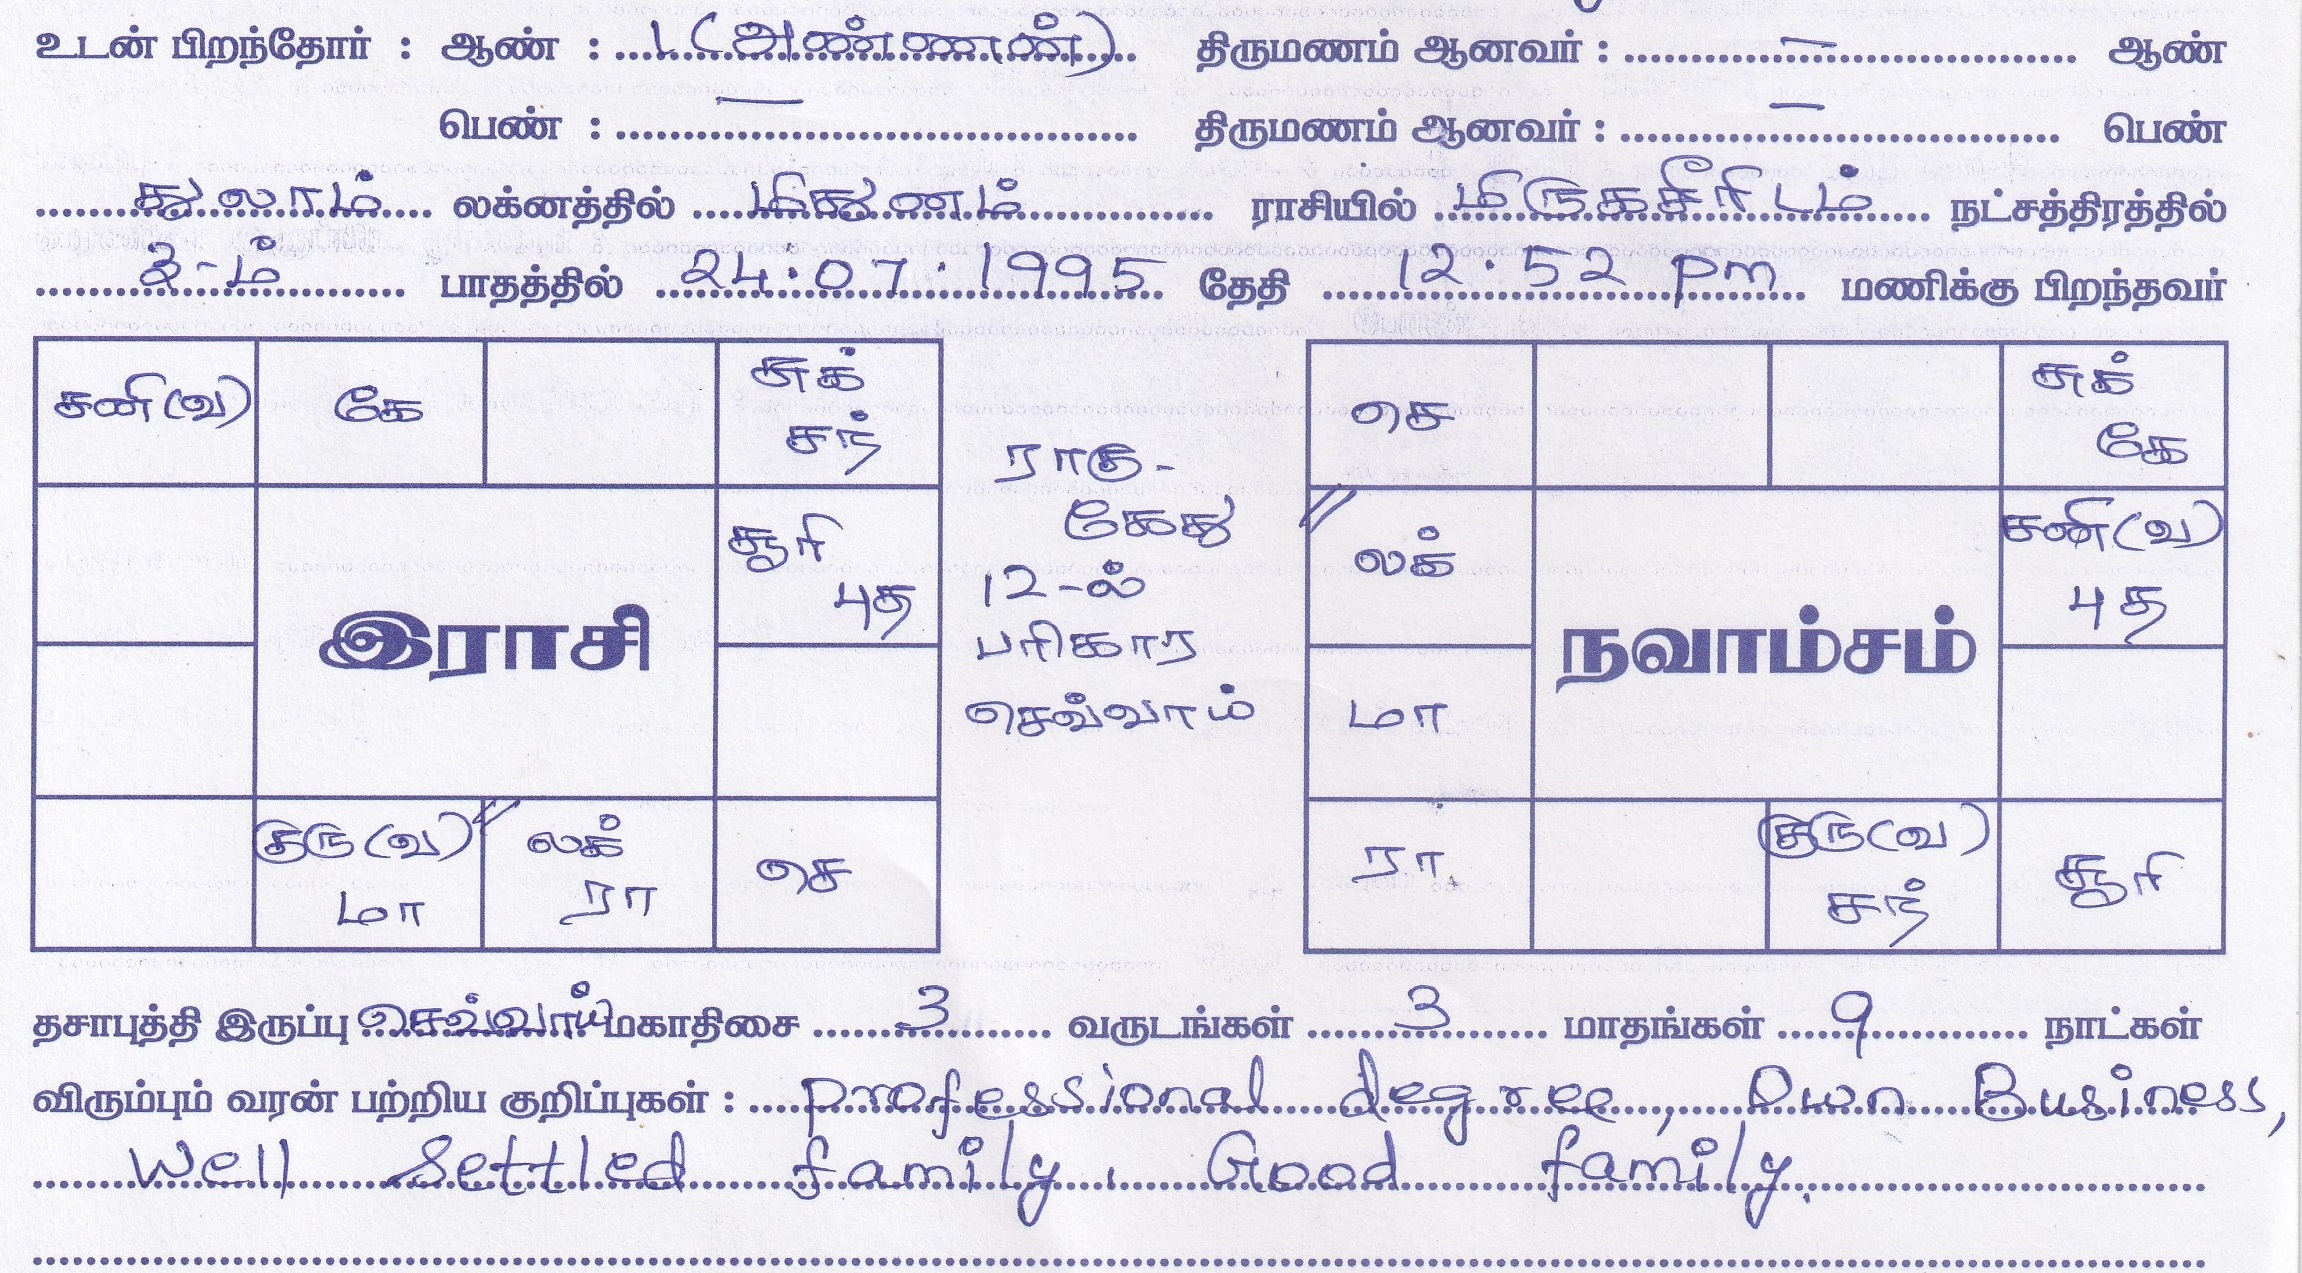 உடன் பிறந்தோர் : ஆண் : 1 (அண்ணன்) திருமணம் ஆனவர் : – ஆண்
பெண் : – திருமணம் ஆனவர் : – பெண்
துலாம் லக்னத்தில் மிதுனம் ராசியில் மிருகசீரிடம் நட்சத்திரத்தில்
3-ம் பாதத்தில் 24.07.1995 தேதி 12.52 pm மணிக்கு பிறந்தவர்
சனி(வ) கே சுக்
சந்
சூரி
புத
இராசி
குரு(வ)
மா
லக்
ரா
செ
ராகு-
கேது
12-ல்
பரிகார
செவ்வாய்
செ சுக்
கே
லக் சனி(வ)
புத
நவாம்சம்
மா
ரா குரு(வ)
சந்
சூரி
தசாபுத்தி இருப்பு செவ்வாய் மகாதிசை 3 வருடங்கள் 3 மாதங்கள் 9 நாட்கள்
விரும்பும் வரன் பற்றிய குறிப்புகள் : professional degree, Own Business,
Well Settled family, Good family.